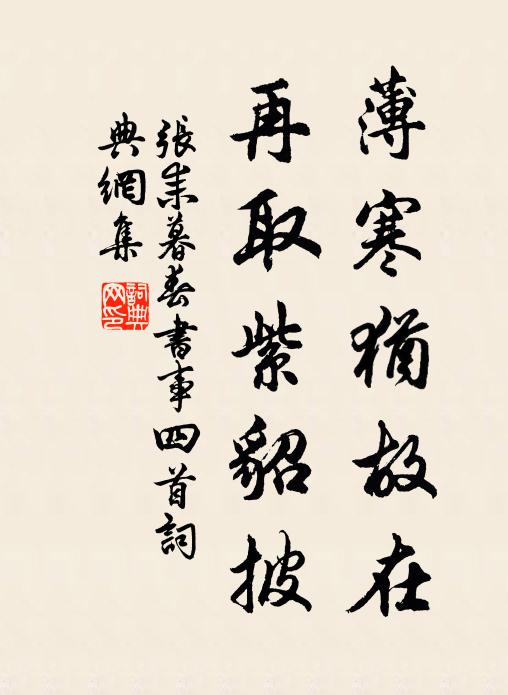 薄寒猶故在
再取紫貂披
張耒暮春書事四首詞
典網集
詞典網印